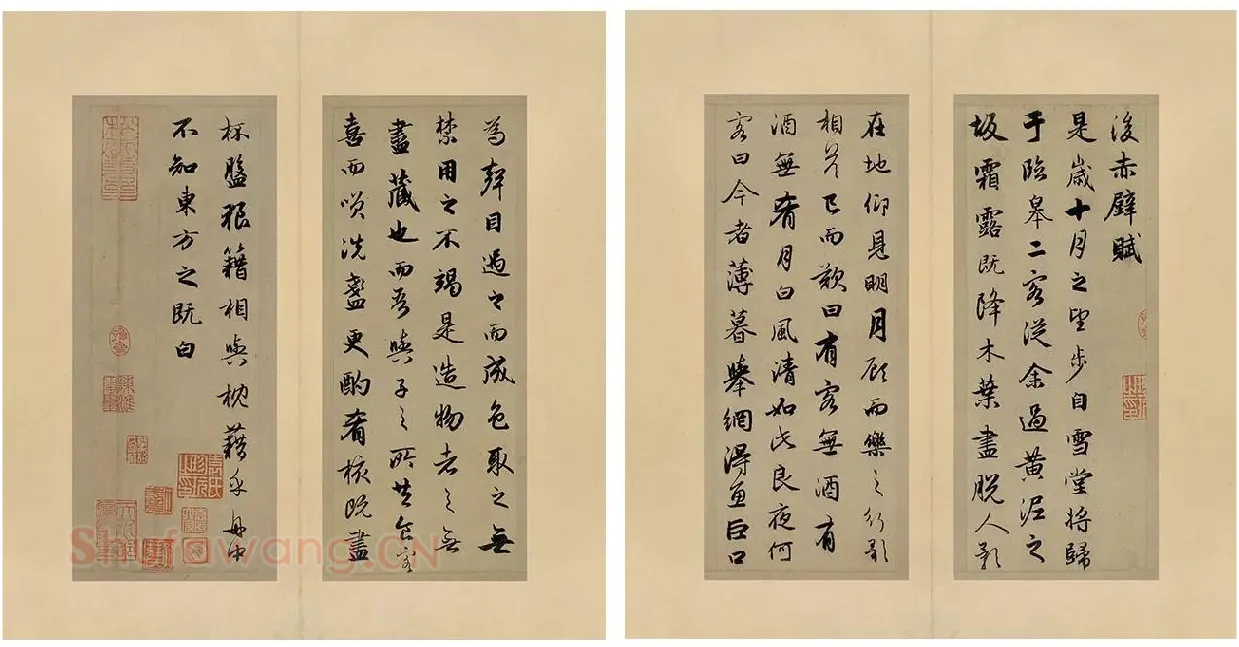 為聲目遇之而成色取之無
禁用之不竭是造物者之無
盡藏也而吾與子之所共食客
喜而笑洗盞更酌肴核既盡
杯盤狼籍相與枕藉乎舟中
不知東方之既白
後赤壁賦
是歲十月之望步自雪堂將歸
于臨皋二客從余過黃泥之
坂霜露既降木葉盡脫人影
在地仰見明月顧而樂之行歌
相答已而歎曰有客無酒有
酒無肴月白風清如此良夜何
客曰今者薄暮舉網得魚巨口
Shufawang.CN